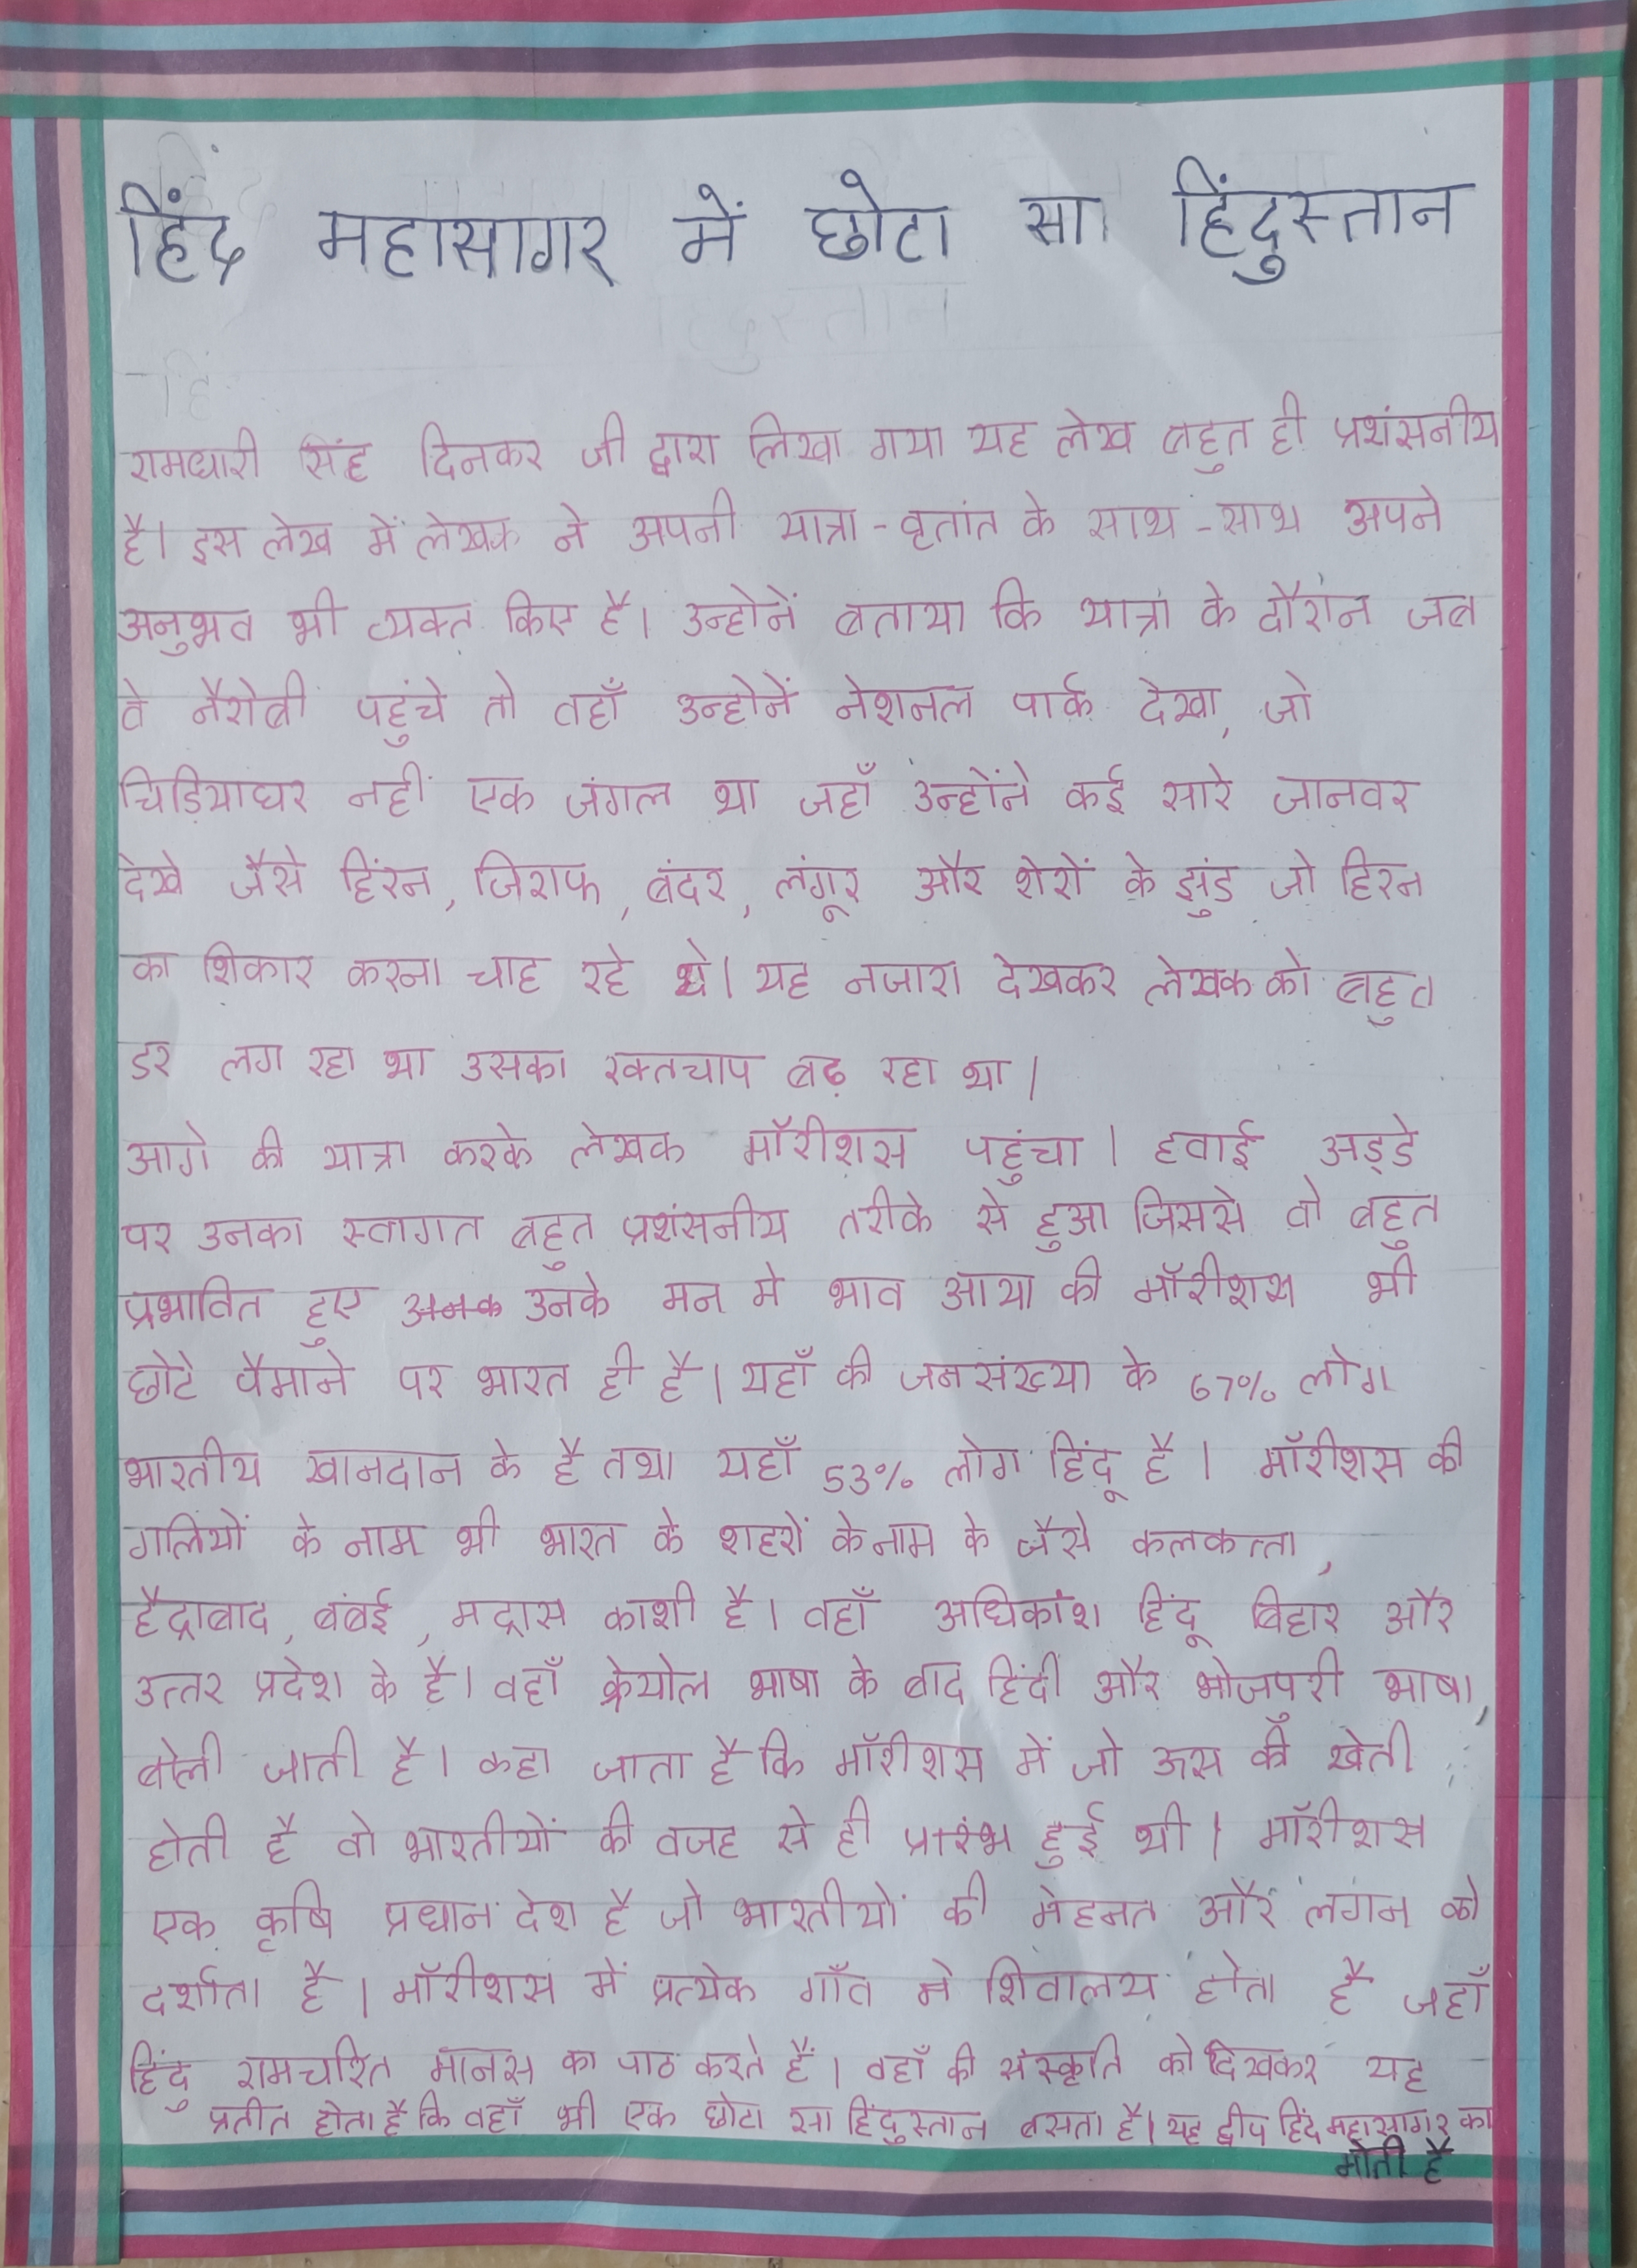 हिंद महासागर में छोटा सा हिंदुस्तान
रामधारी सिंह दिनकर जी द्वारा लिखा गया यह लेख बहुत ही प्रशंसनीय
है। इस लेख में लेखक ने अपनी यात्रा - वृतांत के साथ - साथ अपने
अनुभव भी व्यक्त किए है। उन्होनें बताया कि यात्रा के दौरान जब
वे नैरोबी पहुंचे तो वहाँ उन्होनें नेशनल पार्क देखा, जो
चिड़ियाघर नहीं एक जंगल था जहाँ उन्होंने कई सारे जानवर
देखे जैसे हिरन, जिराफ, बंदर, लंगूर और शेरों के झुंड जो हिरन
का शिकार करना चाह रहे थे। यह नजारा देखकर लेखक को बहुत
डर लग रहा था उसका रक्तचाप बढ़ रहा था।
आगे की यात्रा करके लेखक मॉरीशस पहुंचा। हवाई अड्डे
पर उनका स्वागत बहुत प्रशंसनीय तरीके से हुआ जिससे वो बहुत
प्रभावित हुए उनके मन मे भाव आया की मॉरीशस भी
छोटे पैमाने पर भारत ही है। यहाँ की जनसंख्या के 67% लोग
भारतीय खानदान के है तथा यहाँ 53% लोग हिंदू है। मॉरीशस की
गलियों के नाम भी भारत के शहरों के नाम के जैसे कलकत्ता,
हैद्राबाद, बंबई, मद्रास काशी है। वहाँ अधिकांश हिंदू बिहार और
उत्तर प्रदेश के है। वहाँ क्रेयोल भाषा के बाद हिंदी और भोजपुरी भाषा,
बोली जाती है। कहा जाता है कि मॉरीशस में जो ऊस की खेती
होती है वो भारतीयों की वजह से ही प्रारंभ हुई थी। मॉरीशस
एक कृषि प्रधान देश है जो भारतीयों की मेहनत और लगन को
दर्शाता है। मॉरीशस में प्रत्येक गाँव मे शिवालय होता है जहाँ
हिंदु रामचरित मानस का पाठ करते हैं। वहाँ की संस्कृति को देखकर यह
प्रतीत होता है कि वहाँ भी एक छोटा सा हिंदुस्तान बसता है। यह द्वीप हिंद महासागर का
मोती है